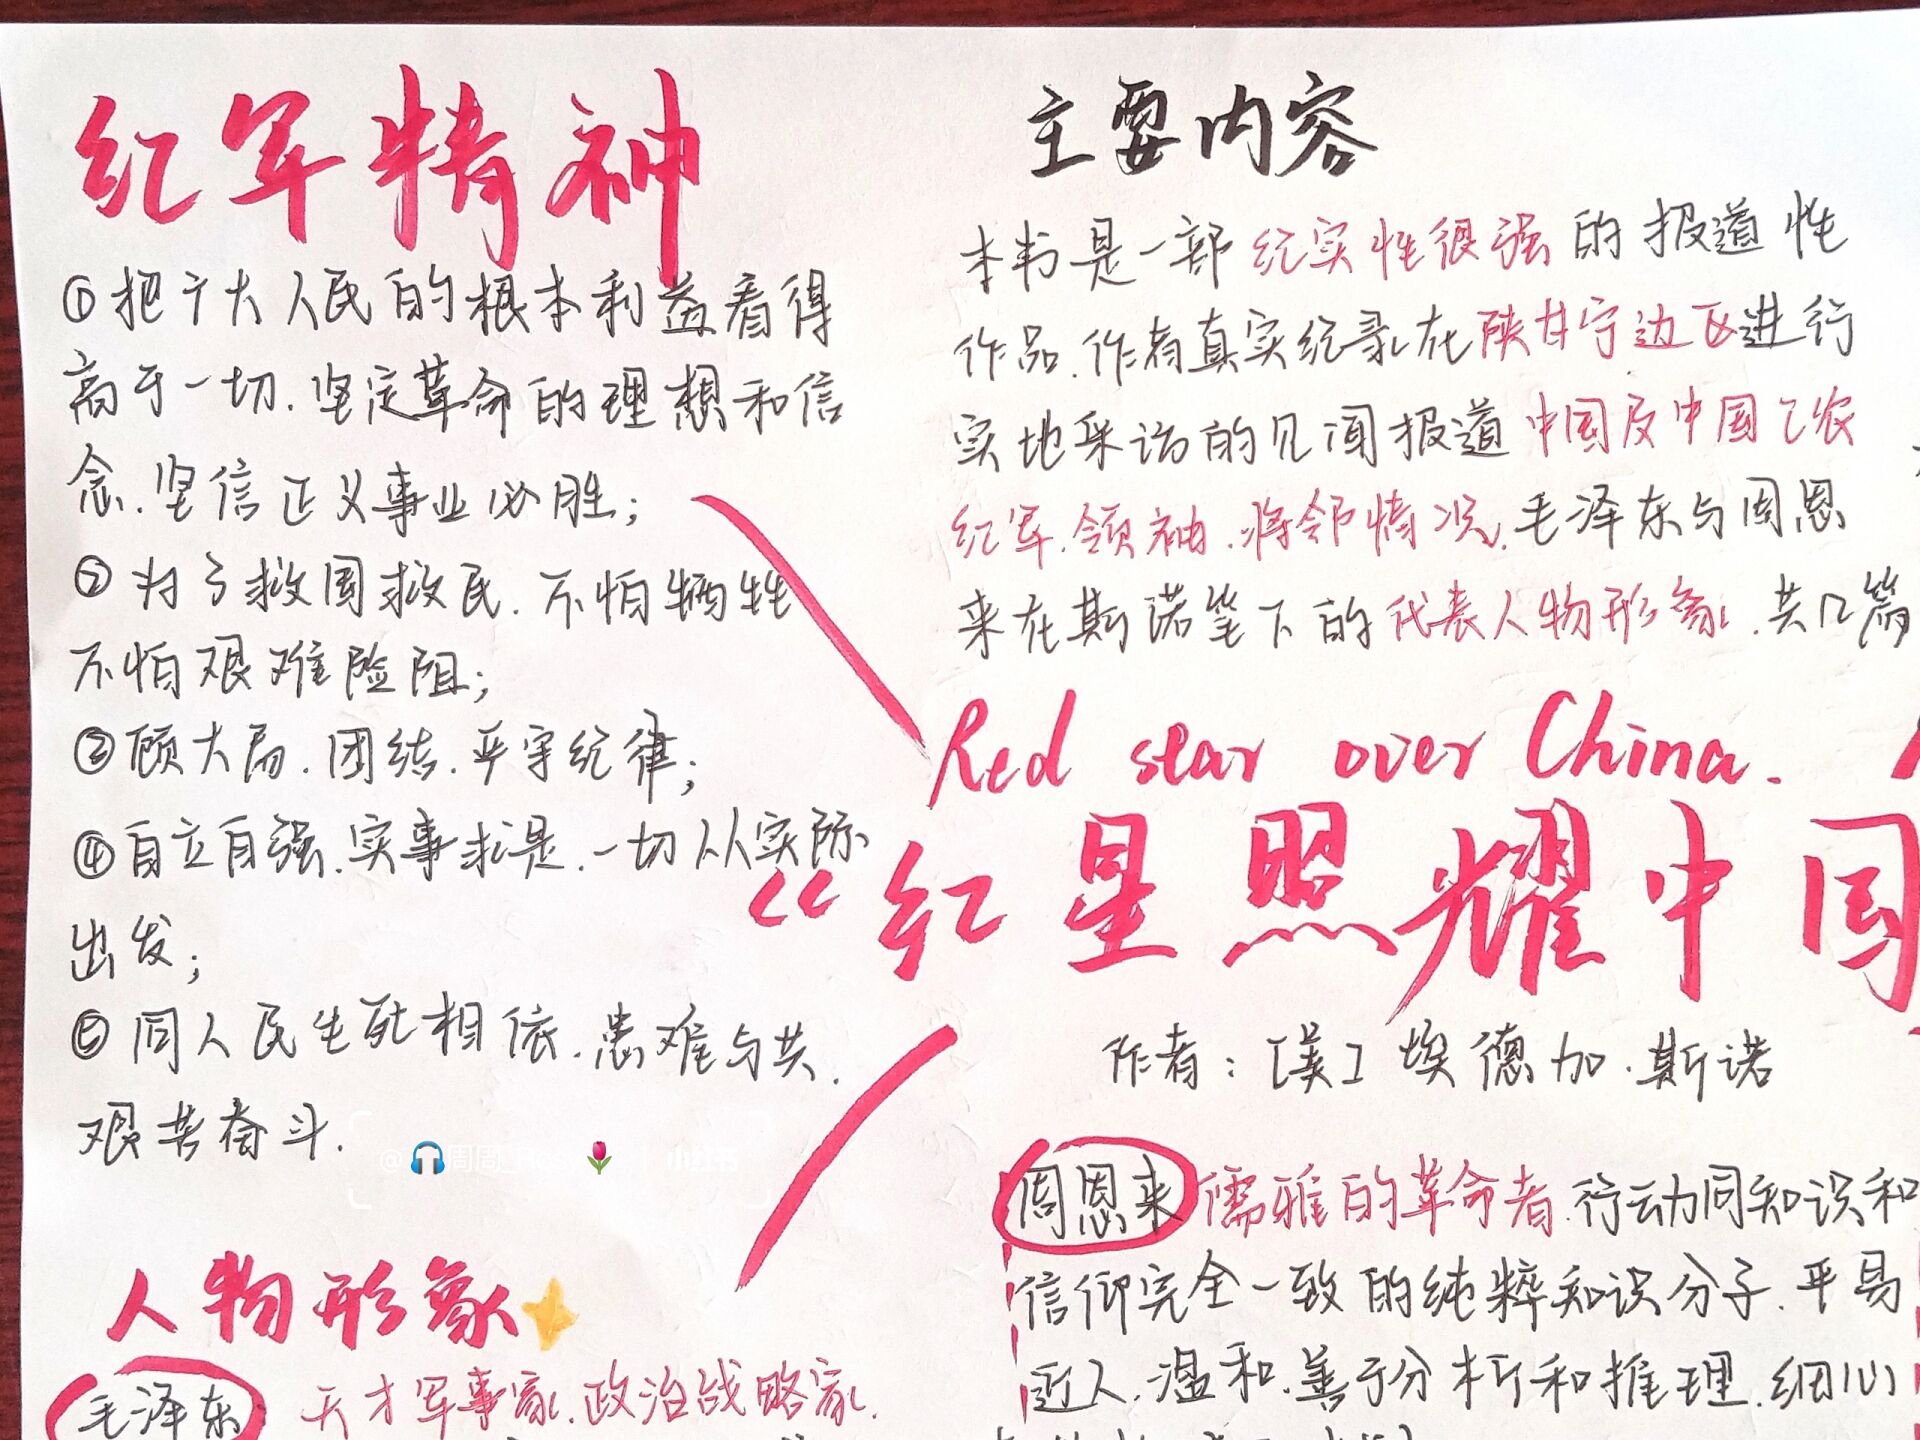 红军精神
①把广大人民的根本利益看得
高于一切.坚定革命的理想和信
念.坚信正义事业必胜;
②为了救国救民.不怕牺牲
不怕艰难险阻;
③顾大局.团结.严守纪律;
④自立自强.实事求是.一切从实际
出发;
⑤同人民生死相依.患难与共.
艰苦奋斗.
主要内容
本书是一部纪实性很强的报道性
作品.作者真实纪录在陕甘宁边区进行
实地采访的见闻报道中国及中国工农
红军.领袖.将领情况.毛泽东与周恩
来在斯诺笔下的代表人物形象.共12篇
Red star over China.
“红星照耀中国
作者:[美]埃德加.斯诺
@🎧周周🌷
人物形象
毛泽东 天才军事家.政治战略家.
周恩来 儒雅的革命者.行动同知识和
信仰完全一致的纯粹知识分子.平易
近人.温和.善于分析和推理.细心